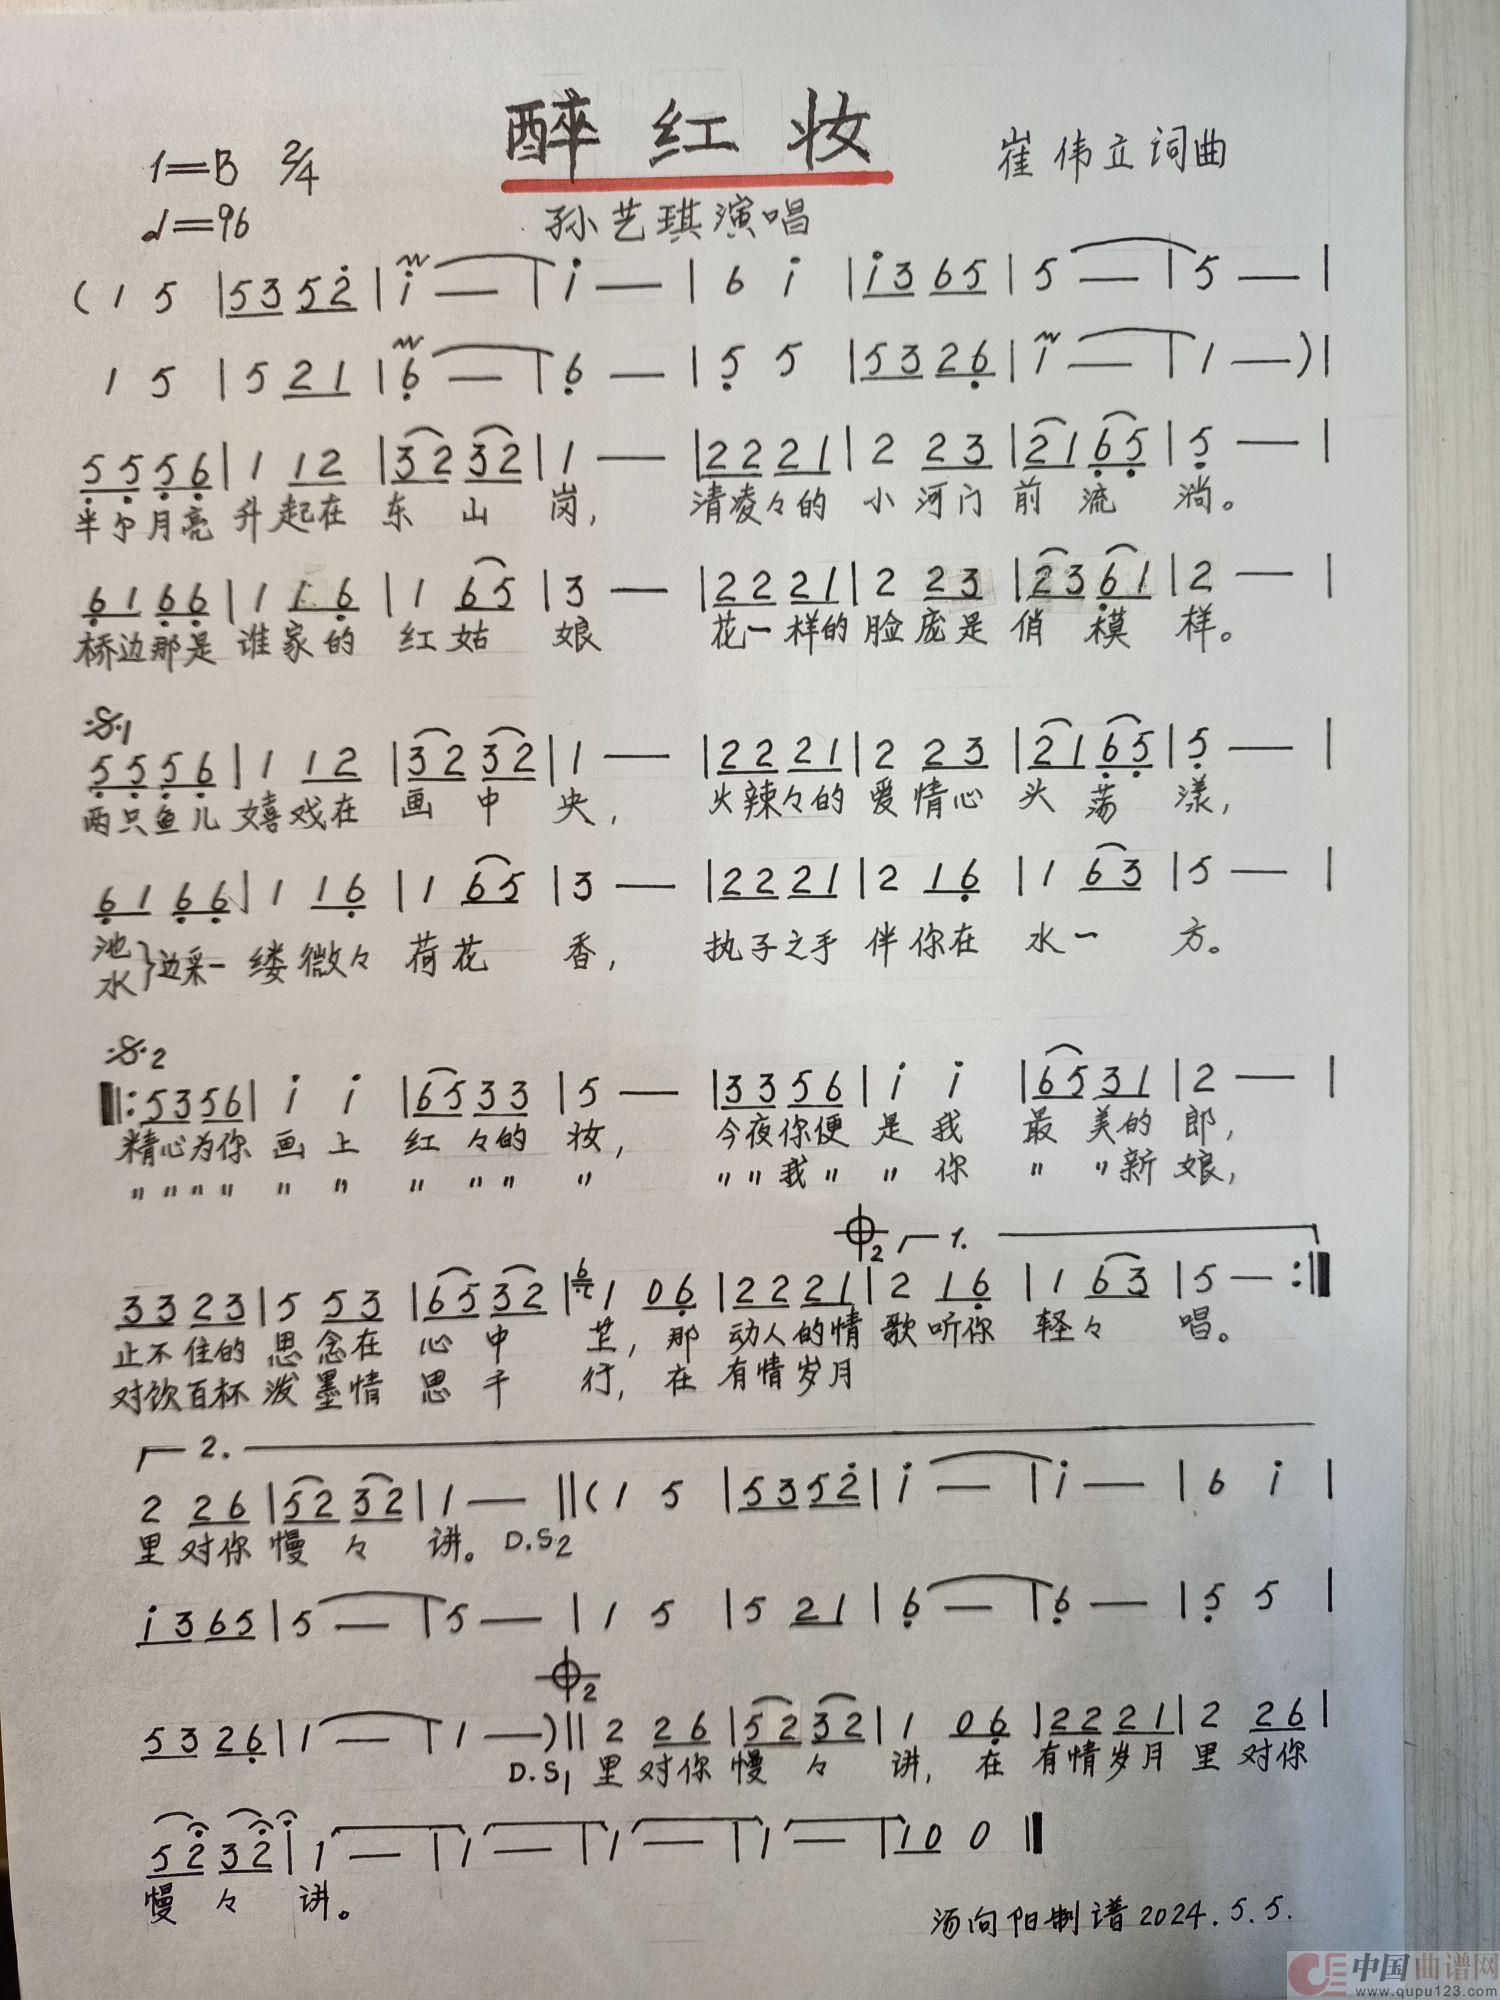 醉红妆
1=B 2/4
崔伟立词曲
♩=96
孙艺琪演唱
( 1 5 | 53 52̇ | 1̇ — | 1̇ — | 6 1̇ | 1̇3 65 | 5 — | 5 — |
1 5 | 5 21 | 6̣ — | 6̣ — | 5̣ 5 | 53 26̣ | 1 — | 1 — ) |
5̣5̣ 5̣6̣ | 1 12 | 32 32 | 1 — | 22 21 | 2 23 | 21 6̣5̣ | 5̣ — |
半个月亮 升起在 东 山 岗, 清凌々的 小河门前 流 淌。
6̣1 6̣6̣ | 1 16̣ | 1 65 | 3 — | 22 21 | 2 23 | 23 6̣1 | 2 — |
桥边那是 谁家的 红姑 娘 花一样的 脸庞是 俏 模 样。
𝄋1
5̣5̣ 5̣6̣ | 1 12 | 32 32 | 1 — | 22 21 | 2 23 | 21 6̣5̣ | 5̣ — |
两只鱼儿 嬉戏在 画 中 央, 火辣々的 爱情心 头 荡 漾,
6̣1 6̣6̣ | 1 16̣ | 1 65 | 3 — | 22 21 | 2 16̣ | 1 63 | 5 — |
池水}边采一 缕微々 荷花 香, 执子之手 伴你在 水一 方。
𝄋2
‖: 53 56 | 1̇ 1̇ | 65 33 | 5 — | 33 56 | 1̇ 1̇ | 65 31 | 2 — |
精心为你 画上 红々的 妆, 今夜你便 是我 最 美的 郎,
〃〃〃〃 〃 〃 〃 〃〃 〃 〃〃我〃 〃你 〃 〃新 娘,
𝄌2 1.
33 23 | 5 53 | 65 32 | 6 1 06̣ | 22 21 | 2 16̣ | 1 63 | 5 — :‖
止不住的 思念在 心 中 芷, 那 动人的情 歌听你 轻々 唱。
对饮百杯 泼墨情 思 千 行, 在 有情岁月
2.
2 26 | 52 32 | 1 — ‖ ( 1 5 | 53 52̇ | 1̇ — | 1̇ — | 6 1̇ |
里对你 慢 々 讲。 D.S2
1̇3 65 | 5 — | 5 — | 1 5 | 5 21 | 6̣ — | 6̣ — | 5̣ 5 |
𝄌2
53 26̣ | 1 — | 1 — ) ‖ 2 26 | 52 32 | 1 06̣ | 22 21 | 2 26 |
D.S1 里对你 慢 々 讲, 在 有情岁月 里 对你
52 32 | 1 — | 1 — | 1 — | 1 — | 10 0 ‖
慢 々 讲。
汤向阳制谱2024.5.5.
中国曲谱网
www.qupu123.com